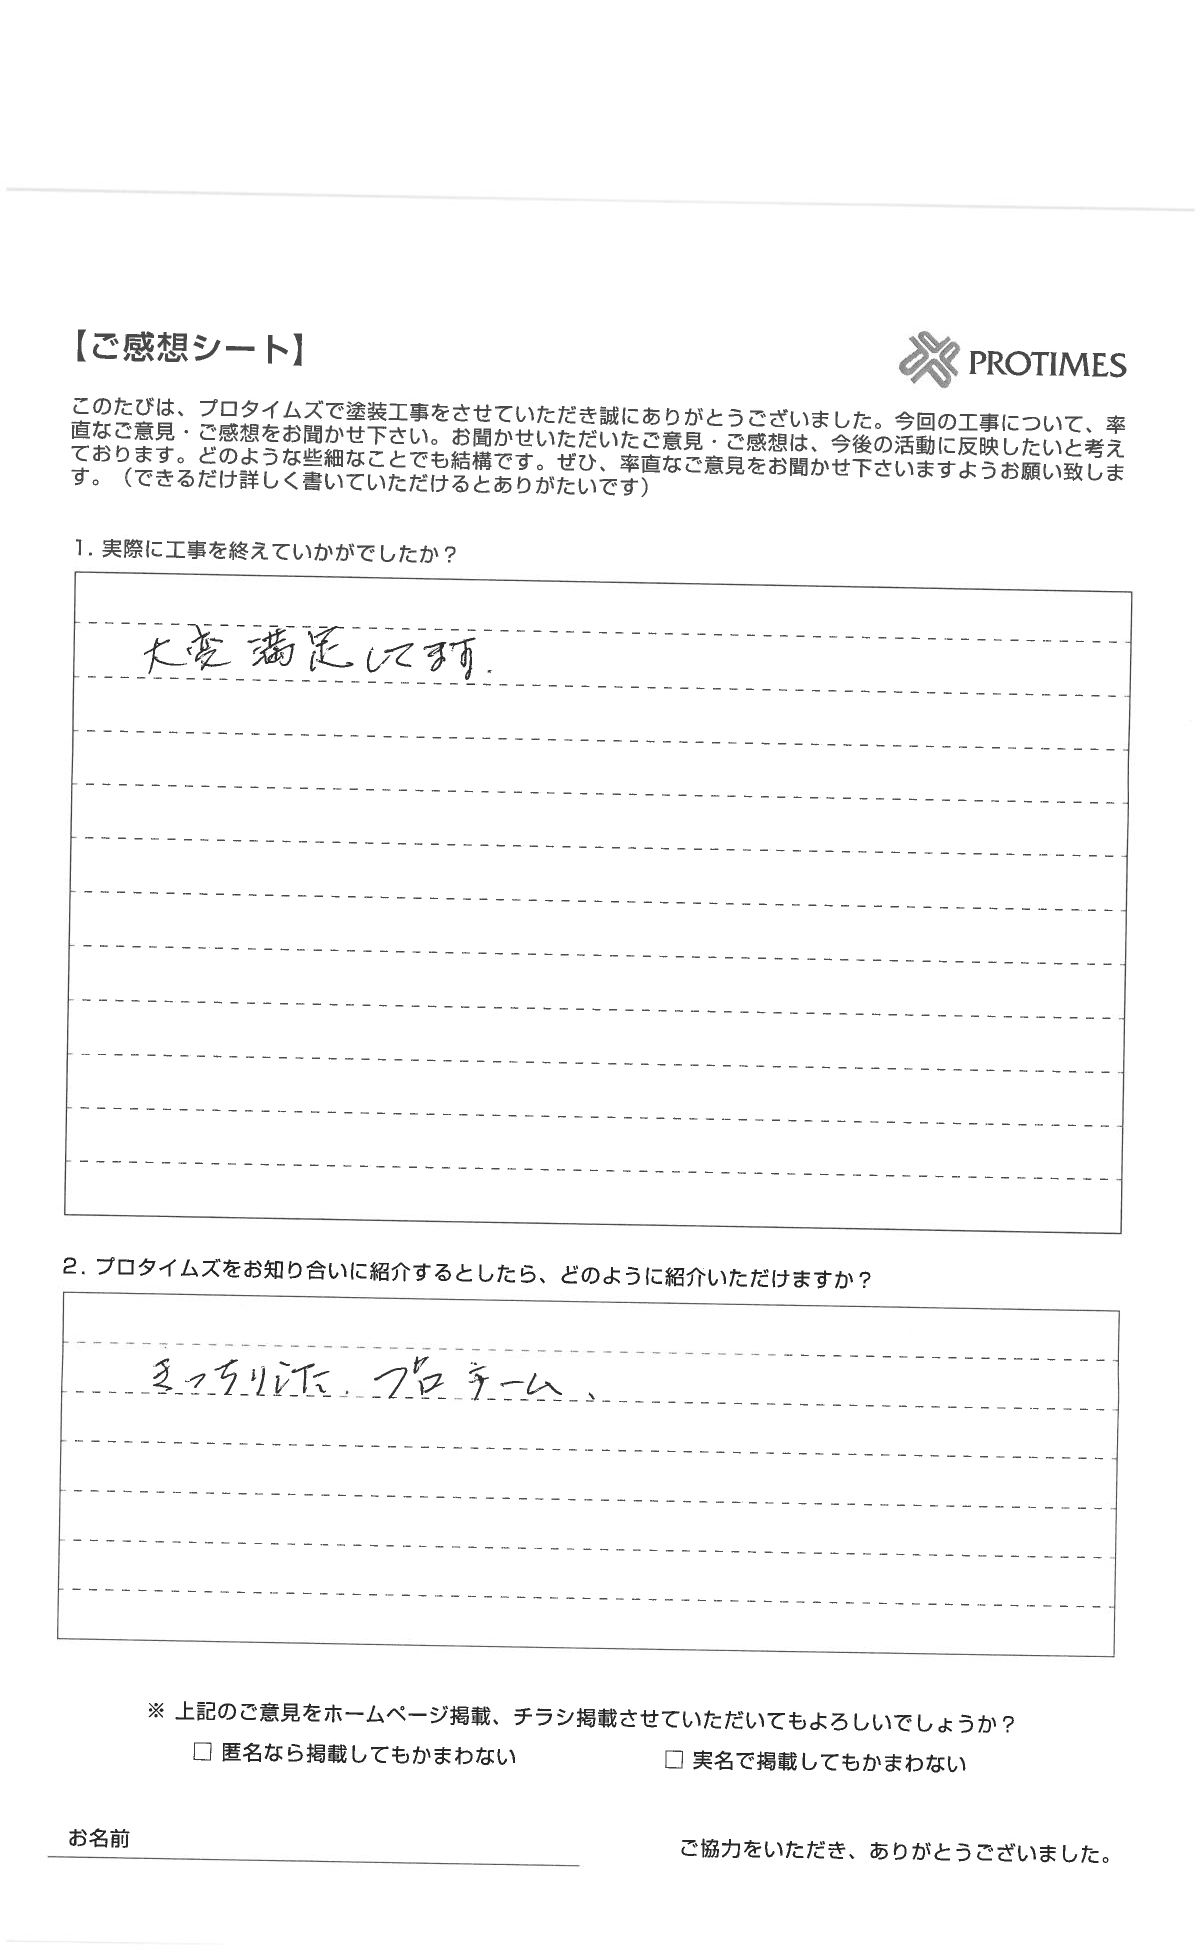 【ご感想シート】
PROTIMES
このたびは、プロタイムズで塗装工事をさせていただき誠にありがとうございました。今回の工事について、率
直なご意見・ご感想をお聞かせ下さい。お聞かせいただいたご意見・ご感想は、今後の活動に反映したいと考え
ております。どのような些細なことでも結構です。ぜひ、率直なご意見をお聞かせ下さいますようお願い致しま
す。（できるだけ詳しく書いていただけるとありがたいです）
1. 実際に工事を終えていかがでしたか？
大変満足してます.
2. プロタイムズをお知り合いに紹介するとしたら、どのように紹介いただけますか？
きっちりした、プロチーム、
※ 上記のご意見をホームページ掲載、チラシ掲載させていただいてもよろしいでしょうか？
□ 匿名なら掲載してもかまわない
□ 実名で掲載してもかまわない
お名前
ご協力をいただき、ありがとうございました。